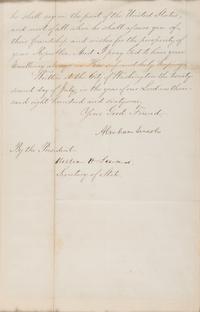 he shall say on the part of the United States,
and most of all when he shall assure you of
their friendship and wishes for the prosperity of
your Republic. And I pray God to have your
Excellency always in His safe and holy keeping.
Written at the City of Washington the twenty
second day of July, in the year of our Lord one thou-
sand eight hundred and sixty one.
Your Good Friend,
Abraham Lincoln
By the President.
William H Seward
Secretary of State.